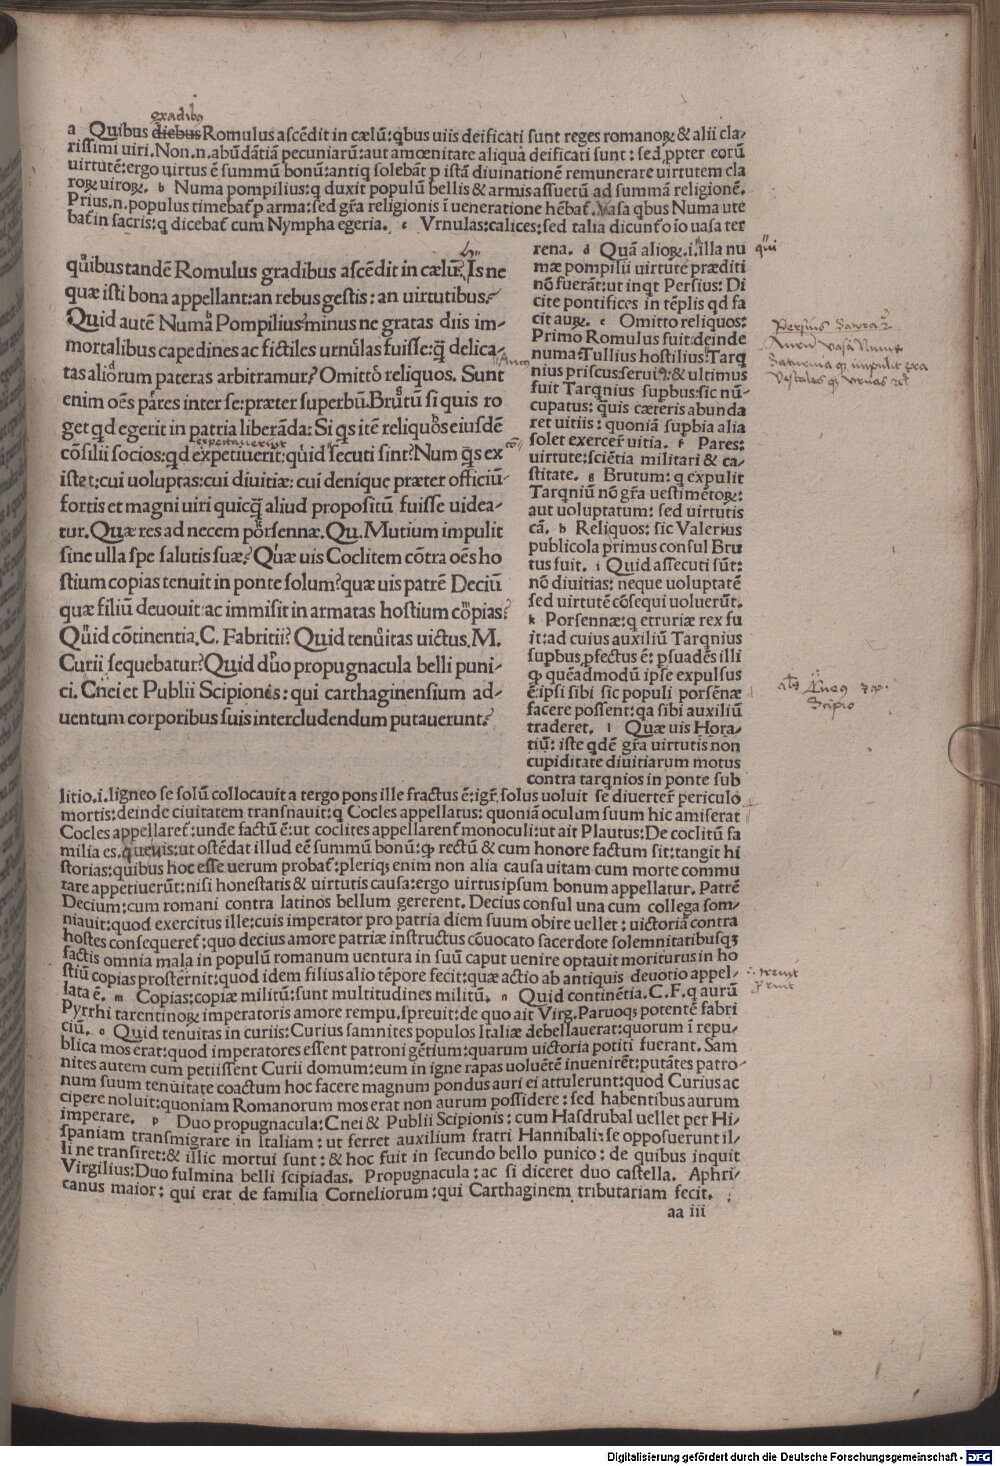 gradibus
a Quibus diebus Romulus ascēdit in cælū: qbus uiis deificati sunt reges romanoꝝ & alii cla-
rissimi uiri. Non .n. abūdātia pecuniarū: aut amœnitate aliqua deificati sunt: sed ꝓpter eorū
uirtutē: ergo uirtus ē summū bonū: antiq solebāt p istā diuinationē remunerare uirtutem cla
roꝝ uiroꝝ. b Numa pompilius: q duxit populū bellis & armis assuetū ad summā religionē.
Prius .n. populus timebat̄ p arma: sed gr̄a religionis ī ueneratione hēbat̄. Vasa qbus Numa ute
bat̄ in sacris: q dicebat̄ cum Nympha egeria. c Vrnulas: calices: sed talia dicunt̄ o īo uasa ter
quibus tandē Romulus gradibus ascēdit in cælū? Is ne
quæ isti bona appellant: an rebus gestis: an uirtutibus?
Quid autē Numa Pompilius? minus ne gratas diis im-
mortalibus capedines ac fictiles urnulas fuisse: q̄ delica-
tas aliorum pateras arbitramur? Omitto reliquos. Sunt
enim oēs pares inter se: præter superbū. Brutū si quis ro
get qd egerit in patria liberāda: Si qs itē reliquos eiusdē
expectauerint
cōsilii socios: qd expetiuerit: quid secuti sint? Num q̄s ex
iste t: cui uoluptas: cui diuitiæ: cui denique præter officiū
fortis et magni uiri quicq̄ aliud propositū fuisse uidea-
tur. Quæ res ad necem porsennæ. Qu. Mutium impulit
sine ulla spe salutis suæ? Quæ uis Coclitem cōtra oēs ho
stium copias tenuit in ponte solum? quæ uis patrē Deciū
quæ filiū deuouit: ac immisit in armatas hostium copias?
Quid cōtinentia. C. Fabritii? Quid tenuitas uictus. M.
Curii sequebatur? Quid duo propugnacula belli puni-
ci. Cnei et Publii Scipionis: qui carthaginensium ad-
uentum corporibus suis intercludendum putauerunt?
rena. d Quā alioꝝ .i. illa nu
mæ pompilii uirtute præditi
nō fuerāt: ut inqt Persius: Di
cite pontifices in tēplis qd fa
cit auꝝ. e Omitto reliquos:
Primo Romulus fuit: deinde
numa: Tullius hostilius: Tarq
nius priscus: seruiꝰ: & ultimus
fuit Tarqnius supbus: sic nū-
cupatus: quis cæteris abunda
ret uitiis: quoniā supbia alia
solet exercer̄ uitia. f Pares:
uirtute: sciētia militari & ca-
stitate. g Brutum: q expulit
Tarqniū nō gr̄a uestimētoꝝ:
aut uoluptatum: sed uirtutis
cā. h Reliquos: sic Valerius
publicola primus consul Bru
tus fuit. i Quid assecuti sūt:
nō diuitias: neque uoluptatē
sed uirtutē cōsequi uoluerūt.
k Porsennæ: q etruriæ rex fu
it: ad cuius auxiliū Tarqnius
supbus ꝓfectus ē: psuadēs illi
ꝙ quēadmodū ipse expulsus
ē: ipsi sibi sic populi porsēnæ
facere possent: qa sibi auxiliū
traderet. l Quæ uis Hora-
tiū: iste qdē gr̄a uirtutis non
cupiditate diuitiarum motus
contra tarqnios in ponte sub
litio .i. ligneo se solū collocauit a tergo pons ille fractus ē: igr̄ solus uoluit se diuerter̄ periculo
mortis: deinde ciuitatem transnauit: q Cocles appellatus: quoniā oculum suum hic amiserat
Cocles appellaret̄: unde factū ē: ut coclites appellarent̄ monoculi: ut ait Plautus: De coclitū fa
milia es. quæuis: ut ostēdat illud eē summū bonū: ꝙ rectū & cum honore factum sit: tangit hi
storias: quibus hoc esse uerum probat̄: pleriqꝫ enim non alia causa uitam cum morte commu
tare appetiuerūt: nisi honestatis & uirtutis causa: ergo uirtus ipsum bonum appellatur. Patrē
Decium: cum romani contra latinos bellum gererent. Decius consul una cum collega som-
niauit: quod exercitus ille: cuis imperator pro patria diem suum obire uellet: uictoriā contra
hostes consequeret̄: quo decius amore patriæ instructus cōuocato sacerdote solemnitatibusqꝫ
factis omnia mala in populū romanum uentura in suū caput uenire optauit moriturus in ho
stiū copias prosternit: quod idem filius alio tēpore fecit: quæ actio ab antiquis deuotio appel-
lata ē. m Copias: copiæ militū: sunt multitudines militū. n Quid continētia. C. F. q aurū
Pyrrhi tarentinoꝝ imperatoris amore rempu. spreuit: de quo ait Virg. Paruoqꝫ potentē fabri
ciū. o Quid tenuitas in curiis: Curius samnites populos Italiæ debellauerat: quorum ī repu-
blica mos erat: quod imperatores essent patroni gētium: quarum uictoria potiti fuerant. Sam
nites autem cum petiissent Curii domum: eum in igne rapas uoluētē inuenirēt: putātes patro-
num suum tenuitate coactum hoc facere magnum pondus auri ei attulerunt: quod Curius ac
cipere noluit: quoniam Romanorum mos erat non aurum possidere: sed habentibus aurum
imperare. p Duo propugnacula: Cnei & Publii Scipionis: cum Hasdrubal uellet per Hi-
spaniam transmigrare in Italiam: ut ferret auxilium fratri Hannibali: se opposuerunt il-
li ne transiret: & illic mortui sunt: & hoc fuit in secundo bello punico: de quibus inquit
Virgilius: Duo fulmina belli scipiadas. Propugnacula: ac si diceret duo castella. Aphri-
canus maior: qui erat de familia Corneliorum: qui Carthaginem tributariam fecit.
aa iii
qui
Persius Satyra 2
Aurū vasa Numę
Saturnia qꝫ impulit æra
Vestales qꝫ urnas
Scipio
Digitalisierung gefördert durch die Deutsche Forschungsgemeinschaft - DFG